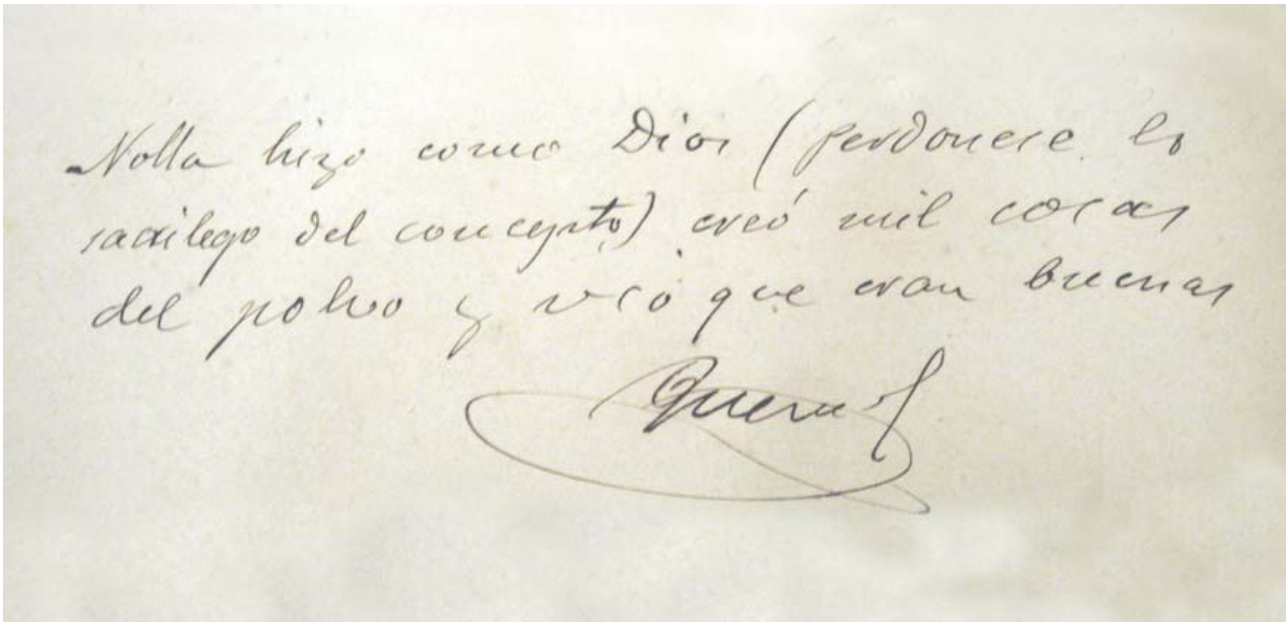 Nolla hizo como Dios (perdonese lo
sacrilego del concepto) creó mil cosas
del polvo y vió que eran buenas